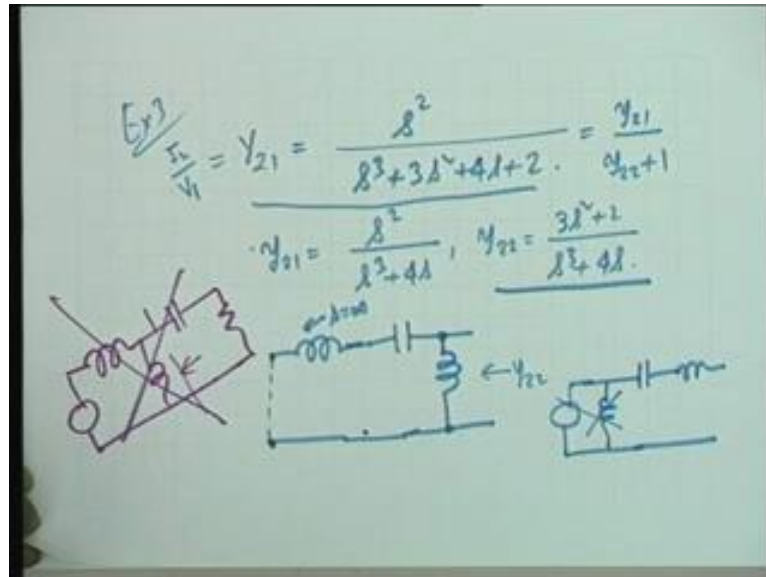 Ex3
I₂/V₁ = Y₂₁ = s²/(s³+3s²+4s+2) . = y₂₁/(y₂₂+1)
· y₂₁ = s²/(s³+4s) , y₂₂ = (3s²+2)/(s³+4s.)
s=∞
← y₂₂